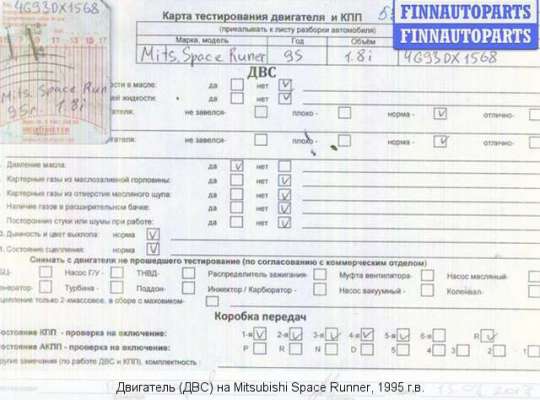 4G93DX1568
Карта тестирования двигателя и КПП
(прикалывать к листу разборки автомобиля)
FINNAUTOPARTS
FINNAUTOPARTS
Марка, модель Год Объём
Mits. Space Runer 95 1.8i 4G93DX1568
ДВС
Mits. Space Run
95г 1.8i
в масле: да нет
жидкости: да нет
не завелся- плохо - норма - отлично-
не завелся- плохо - норма - отлично-
Давление масла: да нет
Картерные газы из маслозаливной горловины: да нет
Картерные газы из отверстия масляного щупа: да нет
Наличие газов в расширительном бачке: да нет
Посторонние стуки или шумы при работе: да нет
Дымность и цвет выхлопа: норма
Состояние сцепления: норма
Снимать с двигателя не прошедшего тестирование (по согласованию с коммерческим отделом)
Насос Г/У - ТНВД- Распределитель зажигания- Муфта вентилятора- Насос масляный-
Турбина - Поддон- Инжектор / Карбюратор - Насос вакуумный - Коленвал-
только 2-хмассовое, в сборе с маховиком-
Коробка передач
КПП - проверка на включение: 1-я 2-я 3-я 4-я 5-я 6-я R
АКПП - проверка на включение: P R N D 5 4 3 2 1
замечания (по работе ДВС и КПП), комплектность :
Двигатель (ДВС) на Mitsubishi Space Runner, 1995 г.в.